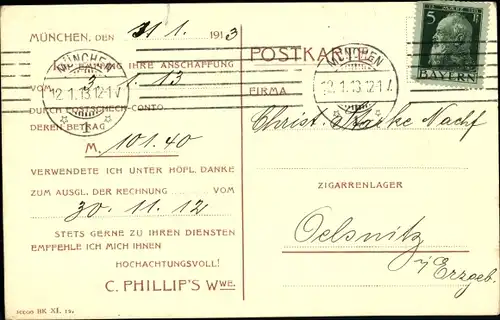 MÜNCHEN, DEN 11/1. 1913
EMPFING IHRE ANSCHAFFUNG
VOM 3. 1. 13
DURCH POSTSCHECK-CONTO.
DEREN BETRAG
M. 101.40
VERWENDETE ICH UNTER HÖFL. DANKE
ZUM AUSGL. DER RECHNUNG VOM
30. 11. 12
STETS GERNE ZU IHREN DIENSTEN
EMPFEHLE ICH MICH IHNEN
HOCHACHTUNGSVOLL!
C. PHILLIP'S WWE.
BK XI. 12.
MÜNCHEN
12.1.13.12-1
1
POSTKARTE
MÜNCHEN
12.1.13.12-1
5 Pf
BAYERN
FIRMA
Christ. Starke Nachf
ZIGARRENLAGER
Oelsnitz
i/Erzgeb.